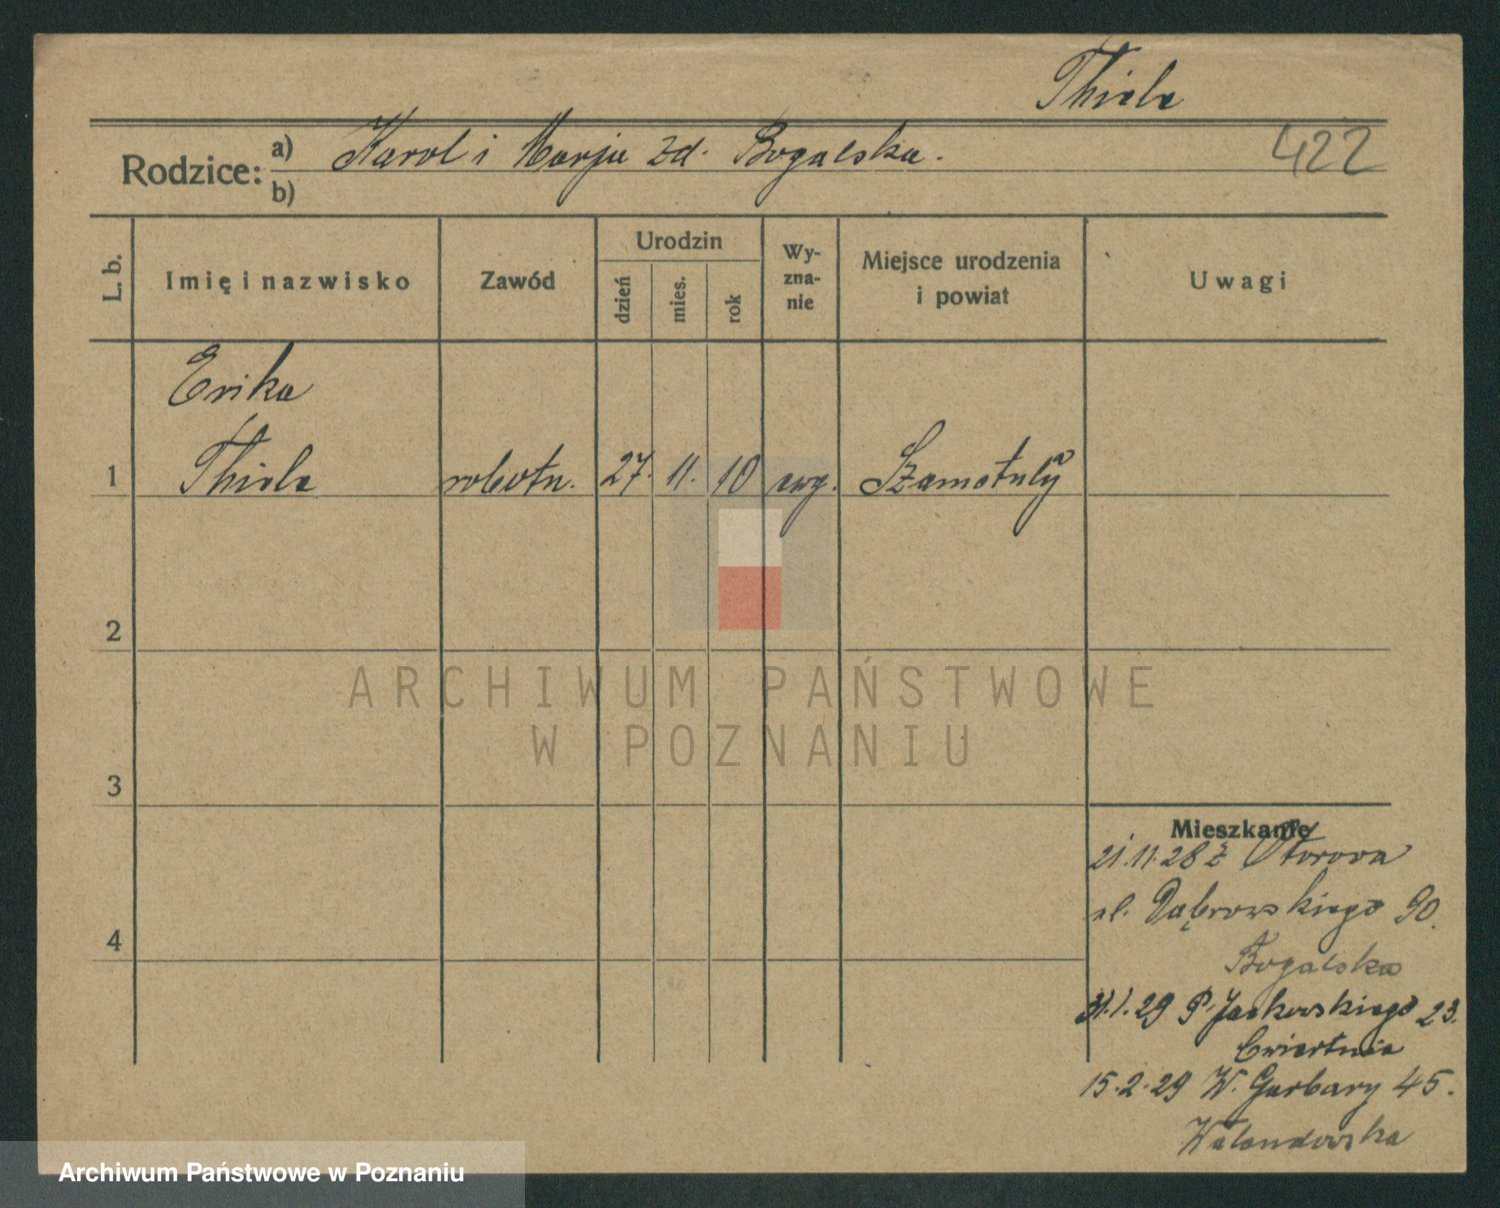 Thiele
Rodzice:
a) Karol i Marja zd. Bogalska.
422
b)
L. b.
Imię i nazwisko
Zawód
Urodzin
dzień
mies.
rok
Wy-
zna-
nie
Miejsce urodzenia
i powiat
Uwagi
Erika
1 Thiele robotn. 27. 11. 10 ewg. Szamotuły
2
3
4
Mieszkanie
21.11.28 z Otorowa
ul. Dąbrowskiego 90.
Bogalska
31.1.29 P. Jackowskiego 23.
Cwiertnia
15.2.29 W. Garbary 45.
ARCHIWUM PAŃSTWOWE
W POZNANIU
Archiwum Państwowe w Poznaniu